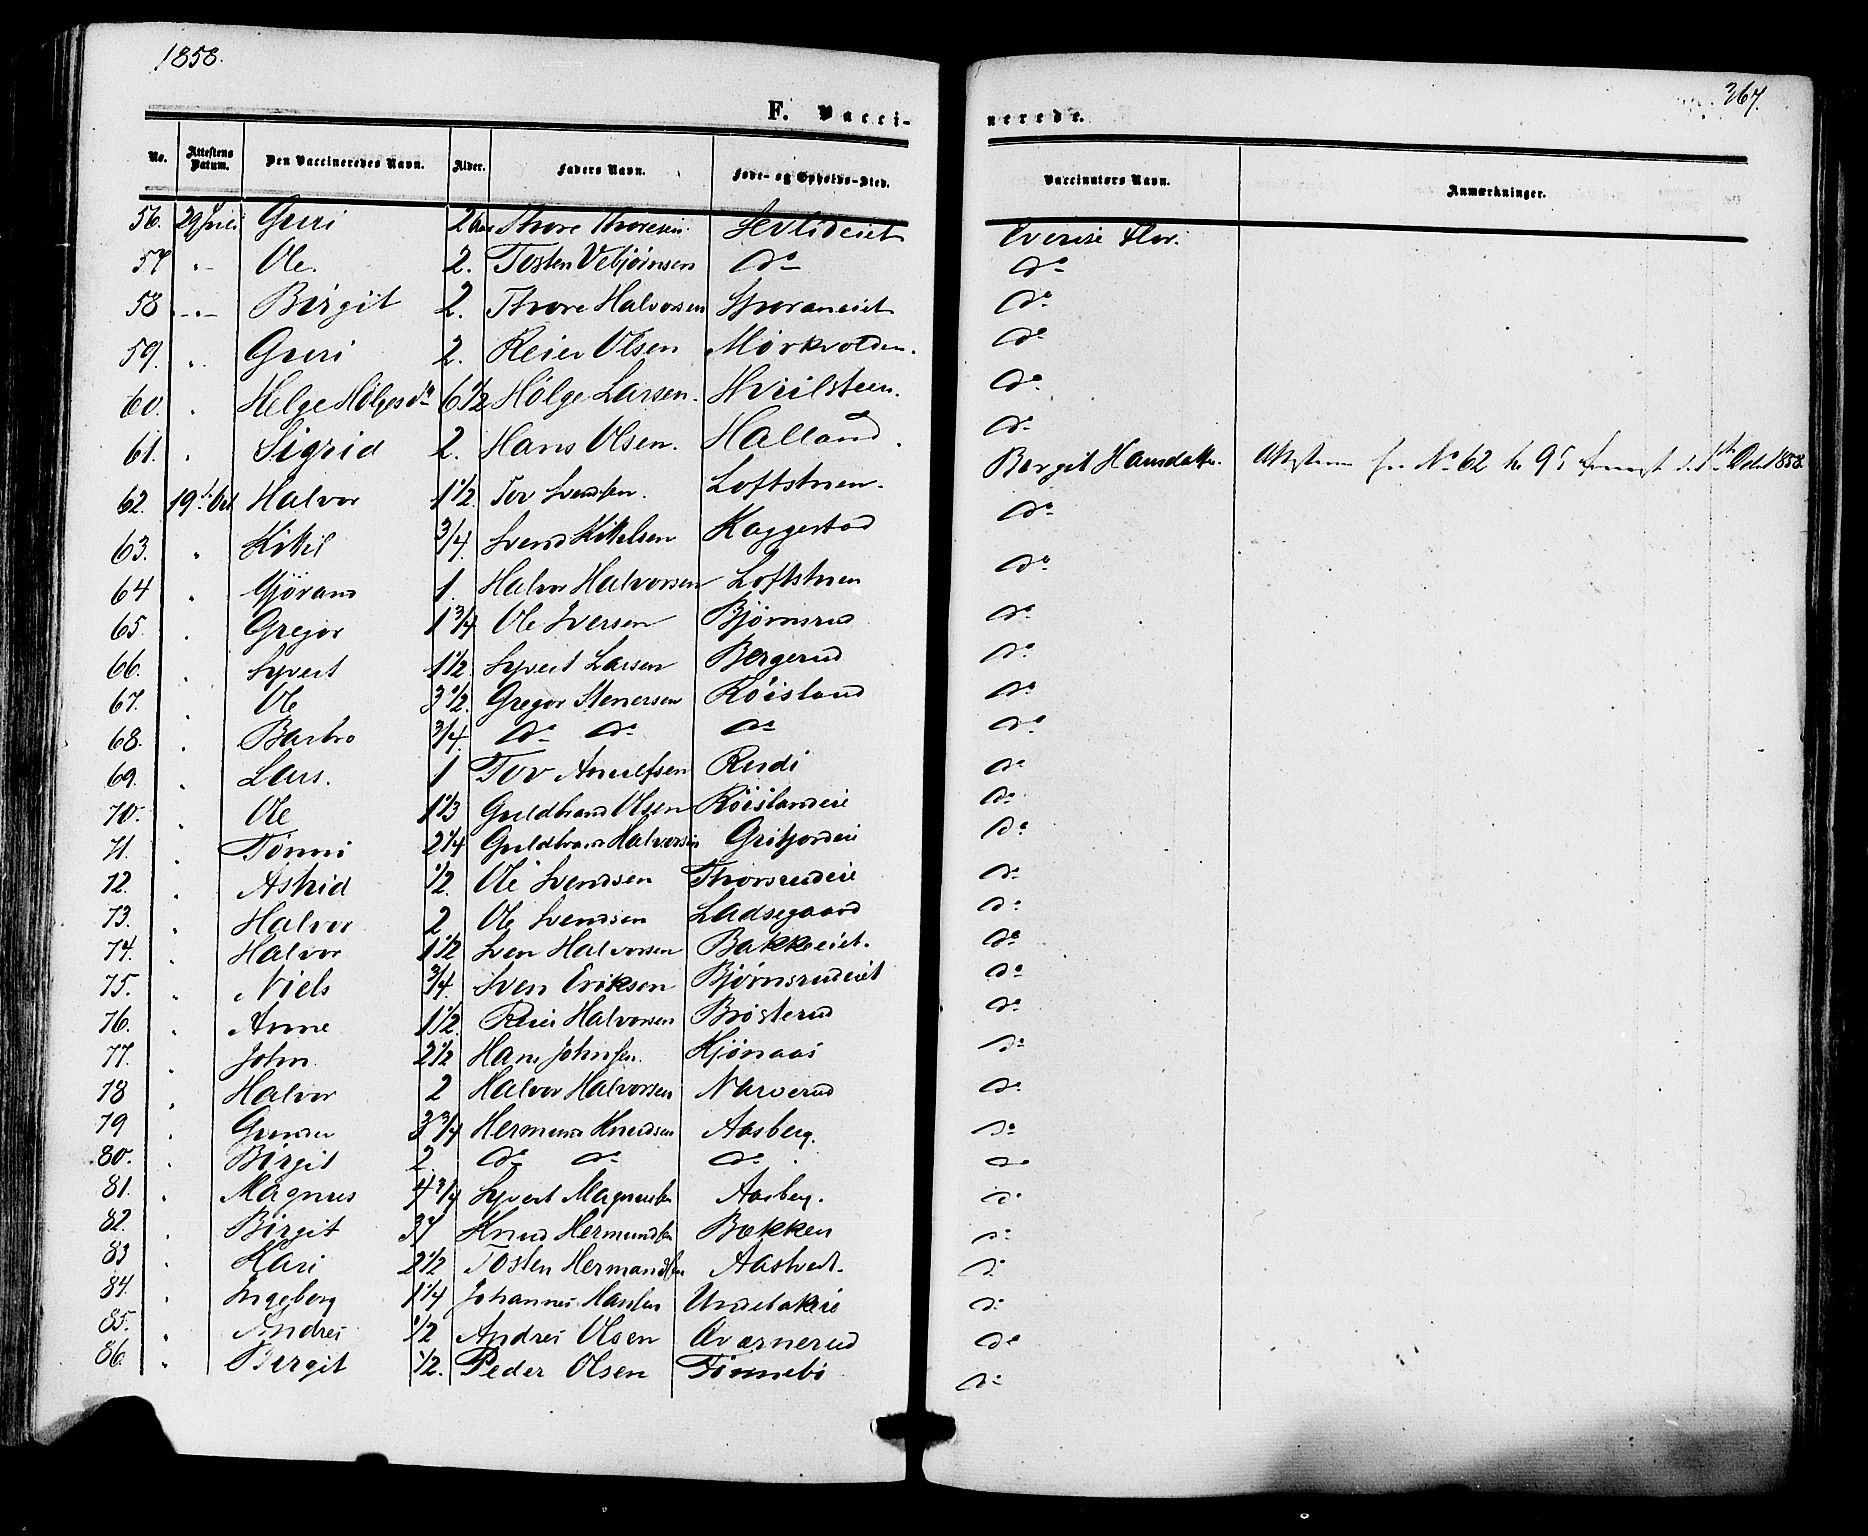 1858.
367.
F. Vacci-
nerede.
No. Attestens Datum. Den Vaccineredes Navn. Alder. Faders Navn. Føde- og Opholds-Sted. Vaccinators Navn. Anmærkninger.
56. Guri 2 Thore Thoresen
57 " Ole. 2. Tosten Vebjørnsen do do
58 " Birgit 2. Thore Halvorsen do
59. " Guri 2. Reier Olsen Mørkvolden. do
60. " Helge Helgesdr 6 1/2 Helge Larsen. Hviilsteen. do
61. " Sigrid 2. Hans Olsen. Halland. do
62. 19 Halvor 1 1/2 Tov Svendsen. Loftstuen. Birgit Hansdatter. No 62 1858
63. " Kittil 3/4. Svend Kittelsen Kaggestad do
64 " Gjøran 1. Halvor Halvorsen Loftstuen do
65. " Gregor 1 3/4 Ole Iversen Bjørnsrud do
66. " Syvert 1 1/2. Syvert Larsen Bergerud do
67. " Ole 3 1/2. Gregor Stenersen Røisland do
68. " Barbro 3/4. do do do do
69. " Lars. 1 Tov Arnulfsen Rudi do
70. " Ole 1 1/3 Guldbrand Olsen Røislandeie do
71. " Tønni 2 1/4 Guldbrand Halvorsen do
72. " Astrid 1/2. Ole Svendsen Thorsrudeie do
73. " Halvor 2 Ole Svendsen Ladsegaard do
74. " Halvor 1 1/2 Sven Halvorsen Bakkeeiet. do
75. " Niels 3/4. Sven Eriksen Bjørnsrudeiet do
76. " Anne 1 1/2. Reier Halvorsen Brøsterud do
77. " John 2 1/2 Hans Johnsen. Hjønaas do
78 " Halvor 2 Halvor Halvorsen Narverud do
79 " 3 3/4 Hermund Knudsen Aasberg. do
80. " Birgit 2. do do do do
81. " Magnus 4 3/4 Syvert Magnussen Aasberg. do
82. " Birgit Knud Hermundsen Bækken do
83 " Kari 2 1/2 Tosten Hermandsen Aastvedt. do
84. " Ingeborg 1 1/4 Johannes Hansen do
85. " Andres 1/2 Andres Olsen Qværnerud do
86. " Birgit 1/2. Peder Olsen Tinnebø do